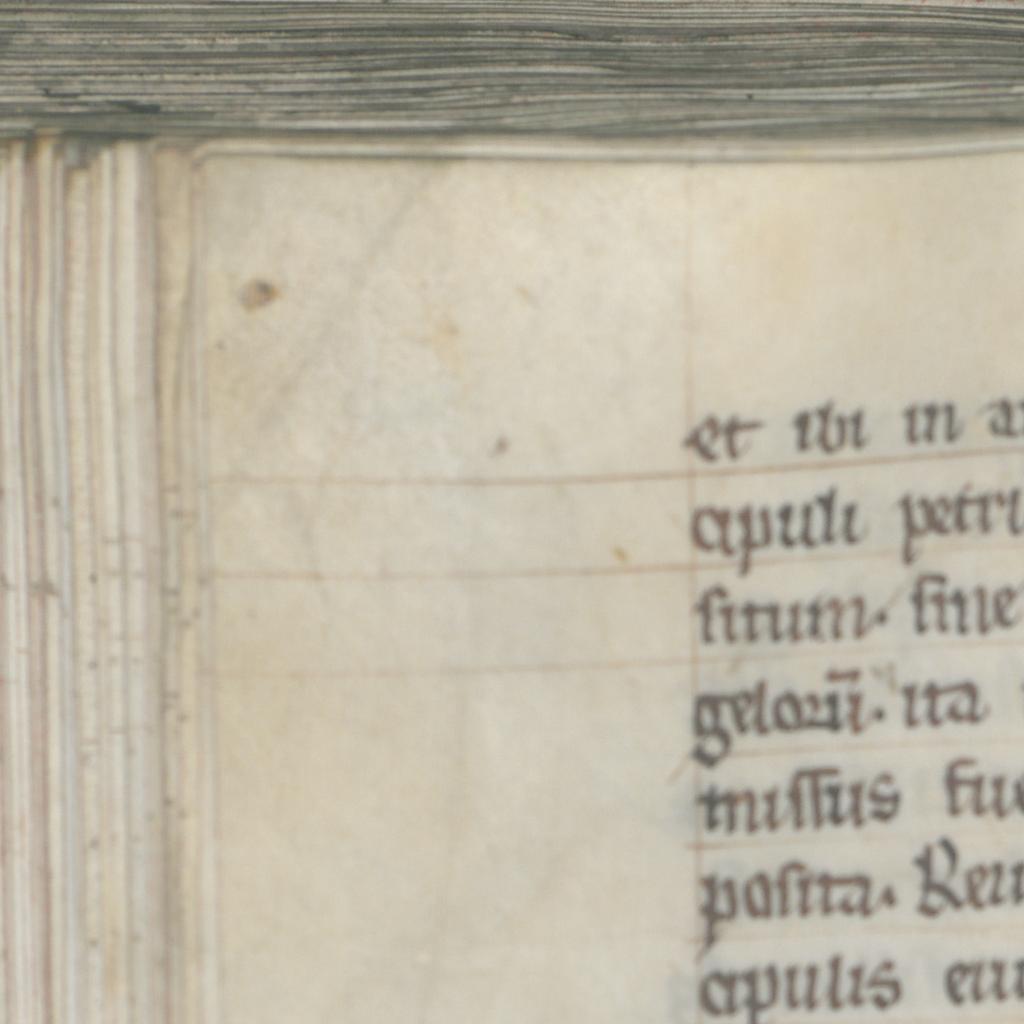 et ibi in
cipuli petri
situm. siue
gelorū. ita
missus fue
posita. Reu
cipulis eiu